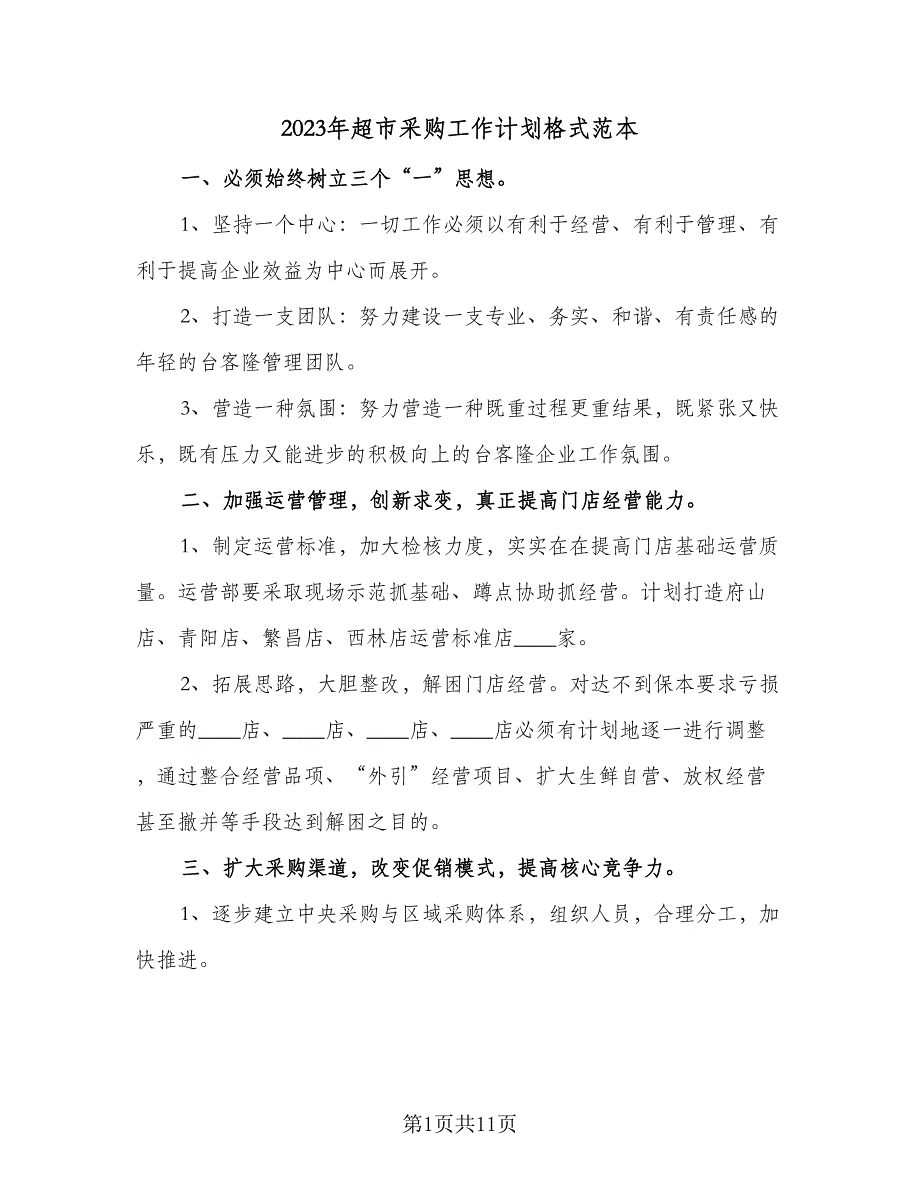 2023年超市采购工作计划格式范本
一、必须始终树立三个“一”思想。
1、坚持一个中心：一切工作必须以有利于经营、有利于管理、有
利于提高企业效益为中心而展开。
2、打造一支团队：努力建设一支专业、务实、和谐、有责任感的
年轻的台客隆管理团队。
3、营造一种氛围：努力营造一种既重过程更重结果，既紧张又快
乐，既有压力又能进步的积极向上的台客隆企业工作氛围。
二、加强运营管理，创新求变，真正提高门店经营能力。
1、制定运营标准，加大检核力度，实实在在提高门店基础运营质
量。运营部要采取现场示范抓基础、蹲点协助抓经营。计划打造府山
店、青阳店、繁昌店、西林店运营标准店____家。
2、拓展思路，大胆整改，解困门店经营。对达不到保本要求亏损
严重的____店、____店、____店、____店必须有计划地逐一进行调整
，通过整合经营品项、“外引”经营项目、扩大生鲜自营、放权经营
甚至撤并等手段达到解困之目的。
三、扩大采购渠道，改变促销模式，提高核心竞争力。
1、逐步建立中央采购与区域采购体系，组织人员，合理分工，加
快推进。
第1页共11页